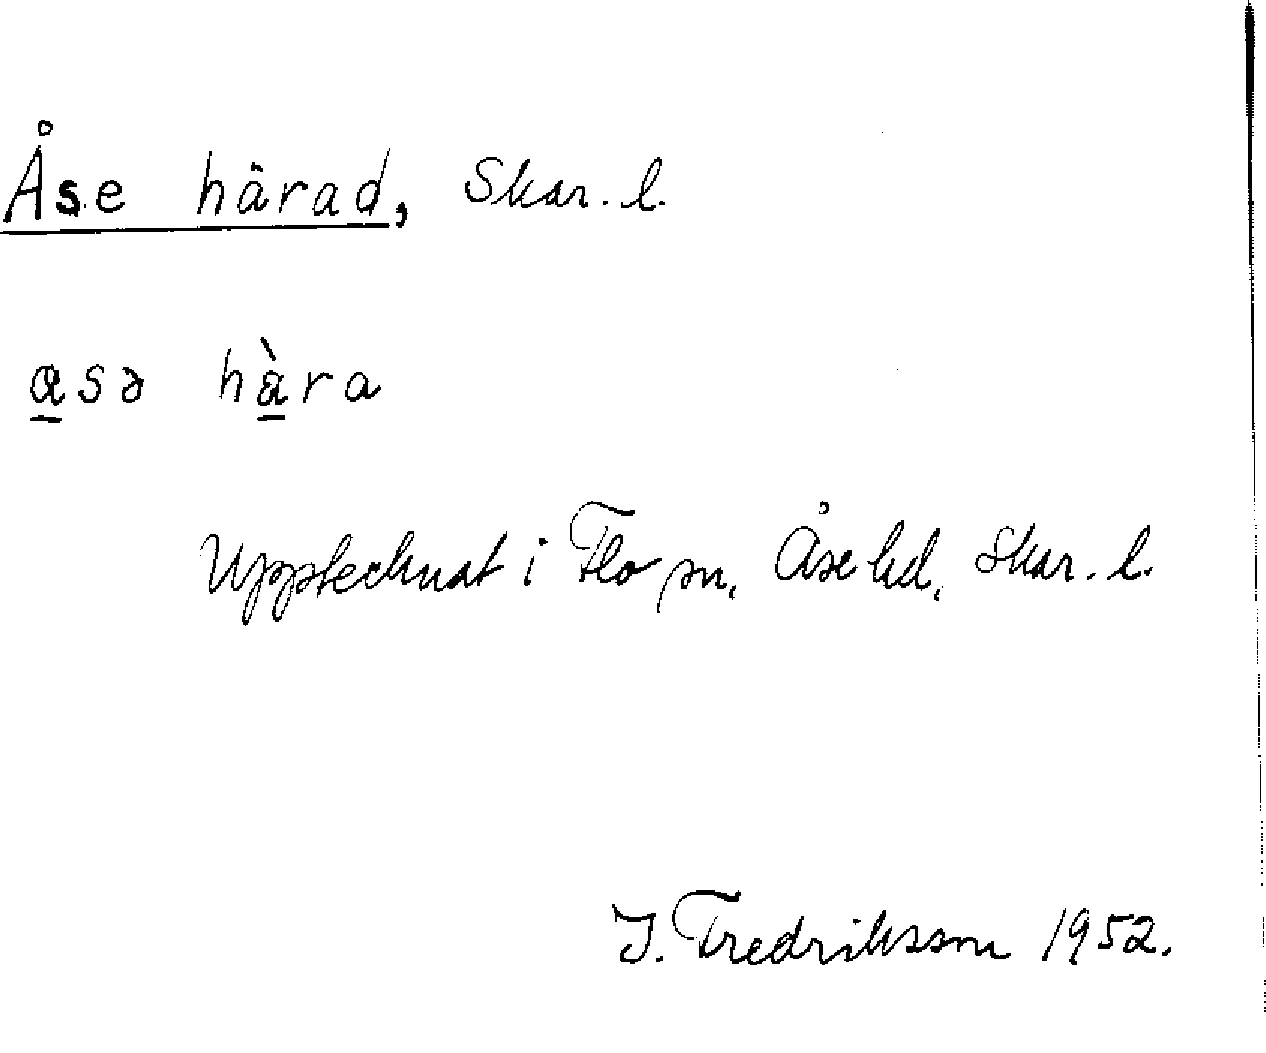 Åse härad, Skar. l.
a̲sə hà̲ra
Upptecknat i Flo sn, Åse hd, Skar. l.
I. Fredriksson 1952.